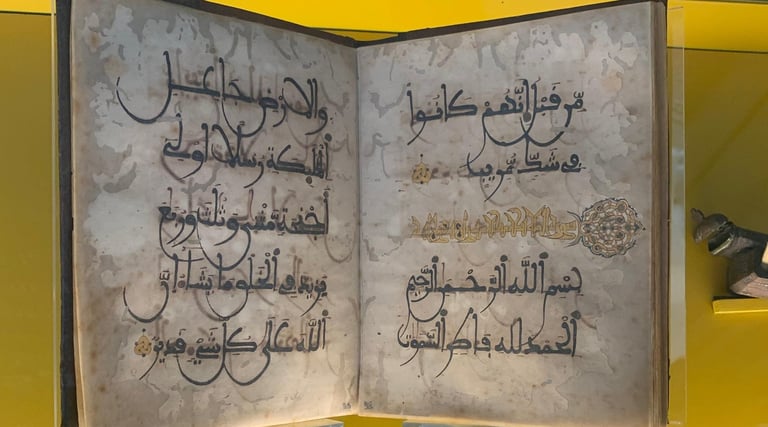 مِّن قَبْلُ إِنَّهُمْ كَانُوا
فِى شَكٍّ مُّرِيبٍ
بِسْمِ ٱللَّهِ ٱلرَّحْمَٰنِ ٱلرَّحِيمِ
ٱلْحَمْدُ لِلَّهِ فَاطِرِ ٱلسَّمَٰوَٰتِ
وَٱلْأَرْضِ جَاعِلِ
ٱلْمَلَٰٓئِكَةِ رُسُلًا أُولِىٓ
أَجْنِحَةٍ مَّثْنَىٰ وَثُلَٰثَ وَرُبَٰعَ
يَزِيدُ فِى ٱلْخَلْقِ مَا يَشَآءُ إِنَّ
ٱللَّهَ عَلَىٰ كُلِّ شَىْءٍ قَدِيرٌ